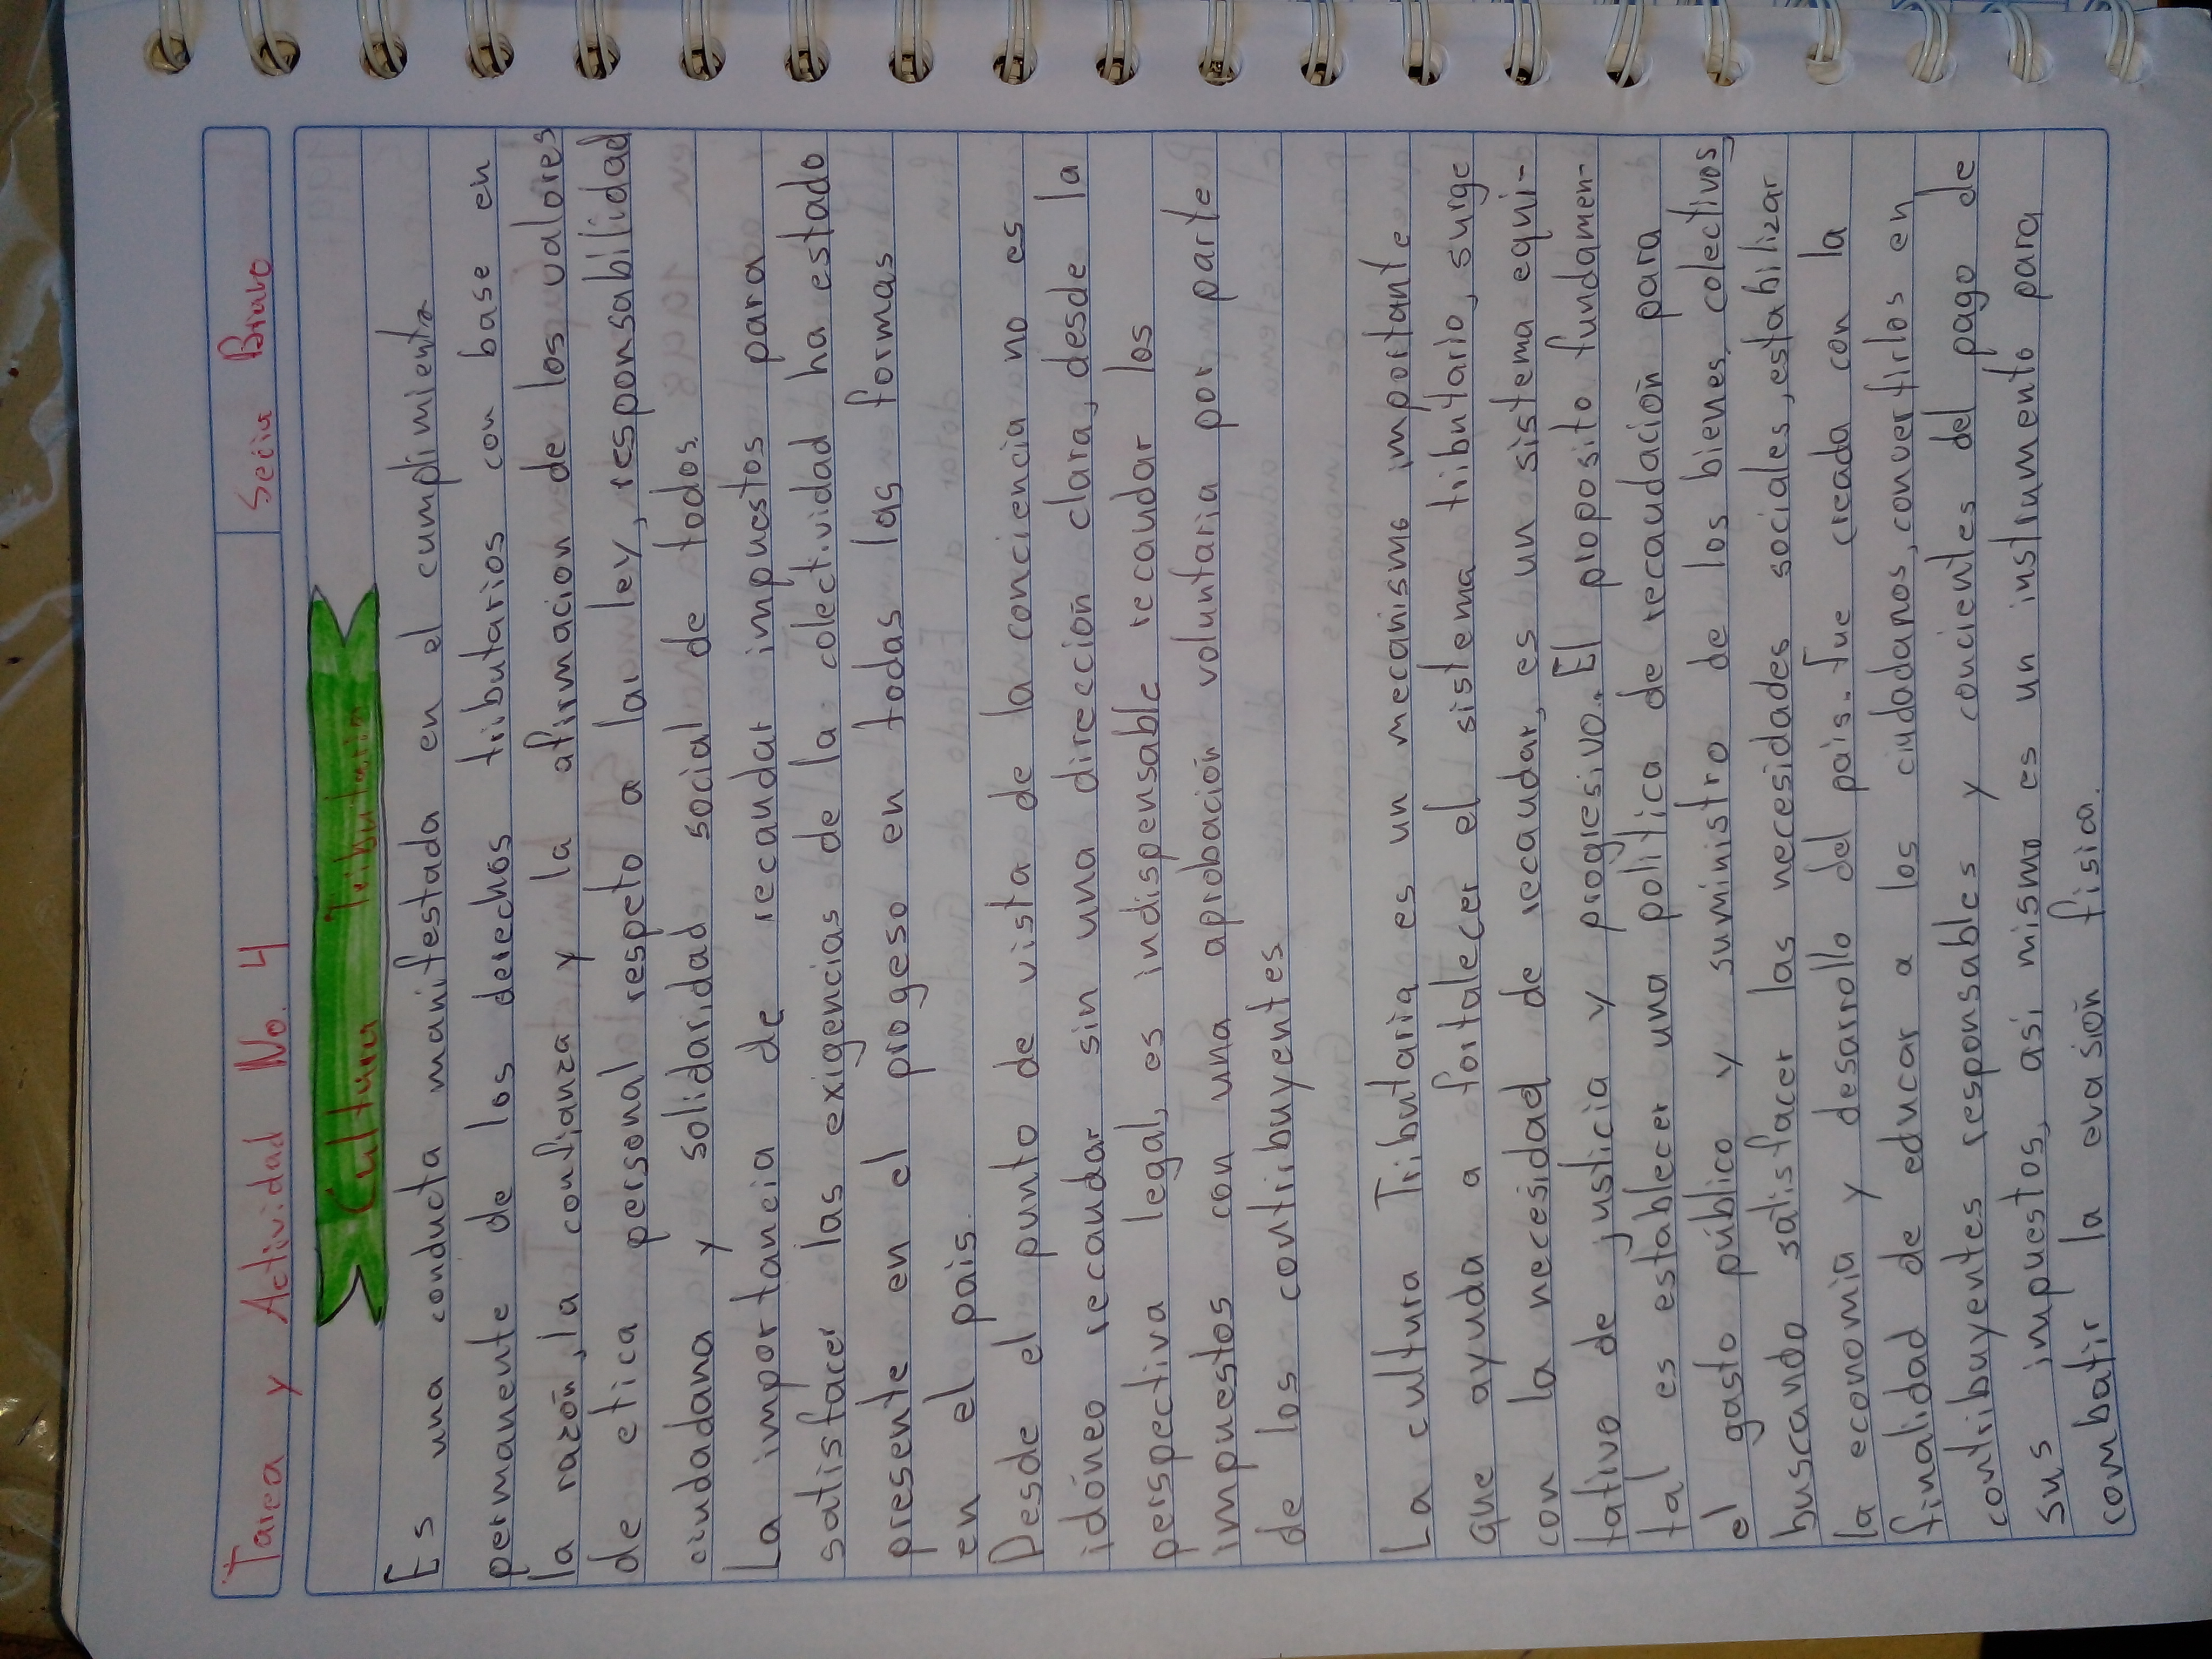 Tarea y Actividad No. 4
Cultura Tributaria
Es una conducta manifestada en el cumplimiento
permanente de los derechos tributarios con base en
la razón, la confianza y la afirmacion de los valores
de etica personal respeto a la ley, responsabilidad
ciudadana y solidaridad social de todos.
La importancia de recaudar impuestos para
satisfacer las exigencias de la colectividad ha estado
presente en el progeso en todas las formas
en el pais.
Desde el punto de vista de la conciencia no es
idóneo recaudar sin una dirección clara, desde la
perspectiva legal, es indispensable recaudar los
impuestos con una aprobación voluntaria por parte
de los contribuyentes.
La cultura Tributaria es un mecanismo importante
que ayuda a fortalecer el sistema tributario, surge
con la necesidad de recaudar, es un sistema equi-
tativo de justicia y progresivo. El proposito fundamen-
tal es establecer una politica de recaudación para
el gasto público y suministro de los bienes colectivos,
buscando satisfacer las necesidades sociales, estabilizar
la economia y desarrollo del pais. Fue creada con la
finalidad de educar a los ciudadanos, convertirlos en
contribuyentes responsables y concientes del pago de
sus impuestos, asi mismo es un instrumento para
combatir la evasión fisica.